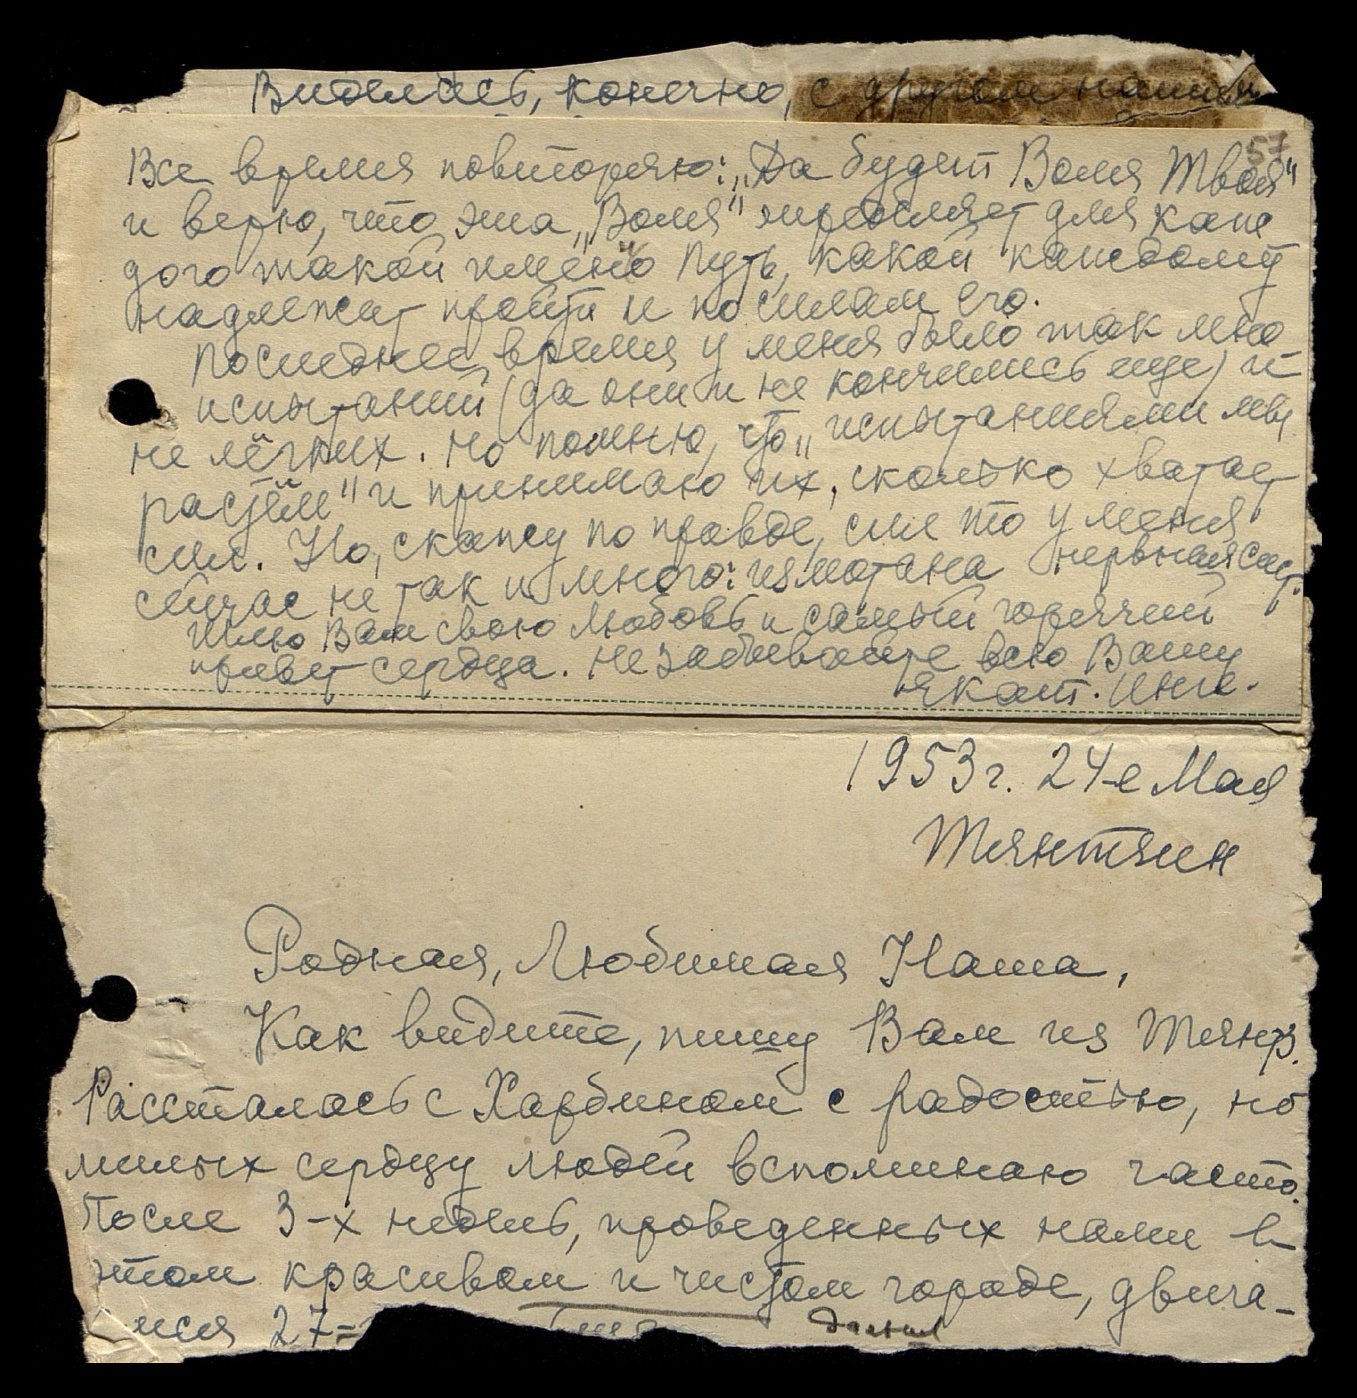 Виделись, конечно, с другом нашим
57
Все время повторяю: „Да будет Воля Твоя"
и верю, что эта „Воля" определяет для каж
дого такой имено путь, какой каждому
надлежит пройти и по силам его.
Последнее время у меня было так мно
испытаний (да они и не кончились еще) и
не лёгких. Но помню, что „испытаниями мы
растём" и принимаю их, сколько хватает
сил. Но, скажу по правде, сил то у меня
сейчас не так и много: измотана нервная сист.
Шлю Вам свою любовь и самый горячий
привет сердца. Не забывайте всю Вашу
Екат. Инге.
1953 г. 24-е Мая
Тянтзин
Родная, Любимая Наша,
Как видите, пишу Вам из Тянтз.
Рассталась с Харбином с радостью, но
милых сердцу людей вспоминаю часто.
После 3-х недель, проведенных нами в
этом красивом и чистом городе, двига-
емся 27=